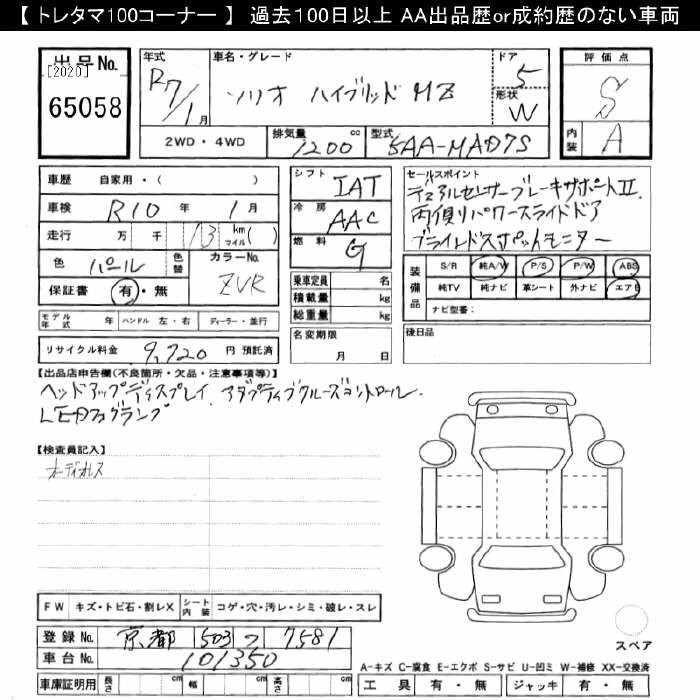 【 トレタマ100コーナー 】 過去100日以上 AA出品歴or成約歴のない車両
出品No.
[2020]
65058
年式
R7/1月
車名・グレード
ソリオ ハイブリッド MZ
ドア
5
形状
W
評価点
S
内装
A
2WD・4WD
排気量
1200 cc
型式
5AA-MAD7S
車歴 自家用・( )
車検 R10 年 1 月
走行 万 千 13 km マイル( )
色 パール 色替
カラーNo.
ZVR
保証書 有・無
モデル年式 年 ハンドル 左・右 ディーラー・並行
リサイクル料金 9,720 円 預託済
シフト IAT
冷房 AAC
燃料 G
乗車定員 名
積載量 kg
総重量 kg
名変期限
月 日
セールスポイント
デュアルセンサーブレーキサポートII
両側パワースライドドア
ブラインドスポットモニター
装備品
S/R 純A/W P/S P/W ABS
純TV 純ナビ 革シート 外ナビ エアB
ナビ型番:
後日品
【出品店申告欄(不良箇所・欠品・注意事項等)】
ヘッドアップディスプレイ アダプティブクルーズコントロール
LEDフォグランプ
【検査員記入】
オーディオレス
FW キズ・トビ石・割レX シート内装 コゲ・穴・汚レ・シミ・破レ・スレ
登録No. 京都 503 つ 7581
車台No. 101350
車庫証明用 長さ cm 幅 cm 高さ cm
スペア
A-キズ C-腐食 E-エクボ S-サビ U-凹ミ W-補修 XX-交換済
工具 有・無 ジャッキ 有・無